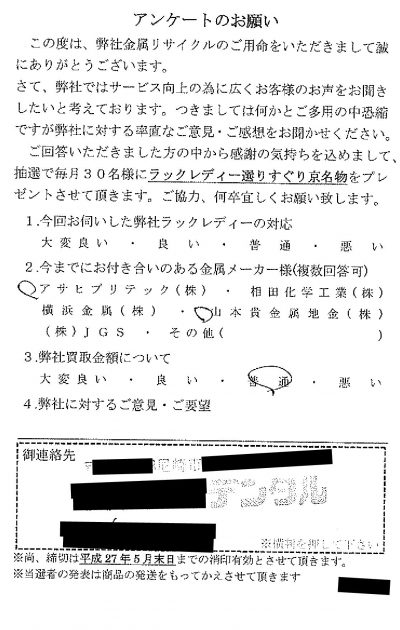 アンケートのお願い
この度は、弊社金属リサイクルのご用命をいただきまして誠
にありがとうございます。
さて、弊社ではサービス向上の為に広くお客様のお声をお聞き
したいと考えております。つきましては何かとご多用の中恐縮
ですが弊社に対する率直なご意見・ご感想をお聞かせください。
ご回答いただきました方の中から感謝の気持ちを込めまして、
抽選で毎月30名様にラックレディー選りすぐり京名物をプレ
ゼントさせて頂きます。ご協力、何卒宜しくお願い致します。
1.今回お伺いした弊社ラックレディーの対応
大変良い ・ 良い ・ 普通 ・ 悪い
2.今までにお付き合いのある金属メーカー様(複数回答可)
アサヒプリテック(株) ・ 相田化学工業(株)
横浜金属(株) ・ 山本貴金属地金(株)
(株)JGS ・ その他( )
3.弊社買取金額について
大変良い ・ 良い ・ 普通 ・ 悪い
4.弊社に対するご意見・ご要望
御連絡先
尼崎市
デンタル
※横判を押して下さい
※尚、締切は平成27年5月末日までの消印有効とさせて頂きます。
※当選者の発表は商品の発送をもってかえさせて頂きます